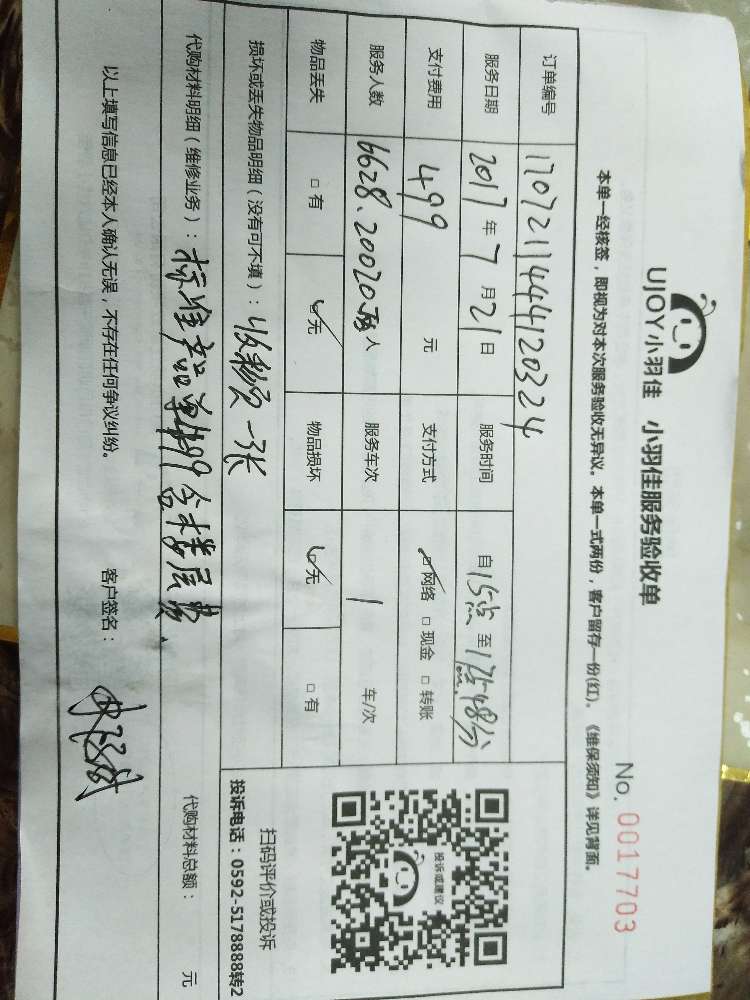 UJOY小羽佳 小羽佳服务验收单
No. 0017703
本单一经核签，即视为对本次服务验收无异议。本单一式两份，客户留存一份(红)。《维保须知》详见背面。
订单编号 1707211444120324
服务日期 2017年7月21日 服务时间 自15点至17点48分
支付费用 499元 支付方式 ☑网络 □现金 □转账
服务人数 6628.20020 人 服务车次 1 车/次
物品丢失 □有 ☑无 物品损坏 ☑无 □有
损坏或丢失物品明细（没有可不填）： 一张
代购材料明细（维修业务）：标准产品 499含楼层费.
代购材料总额： 元
以上填写信息已经本人确认无误，不存在任何争议纠纷。 客户签名：
投诉或建议
扫码评价或投诉
投诉电话：0592-5178888转2